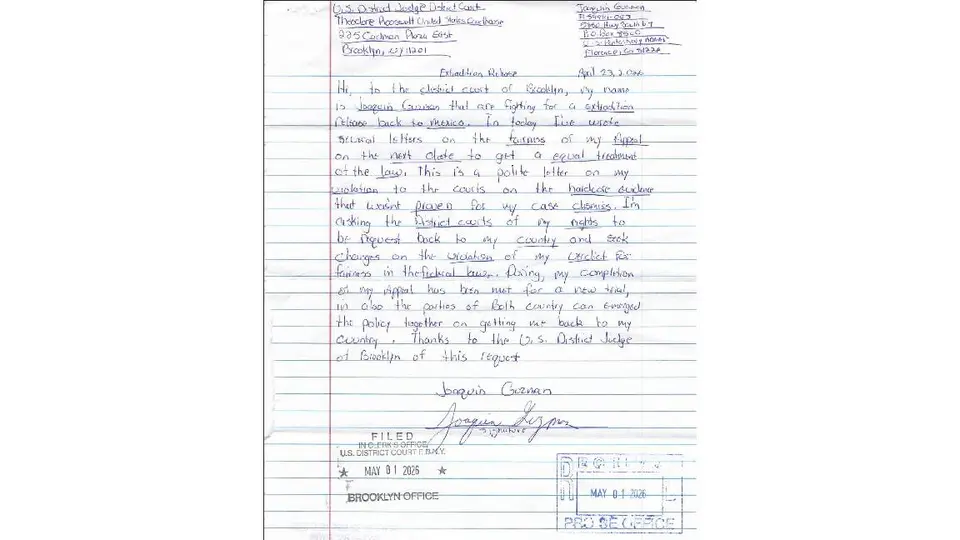 U.S. District Judge District Court
Theodore Roosevelt United States Courthouse
225 Cadman Plaza East
Brooklyn, NY 11201
Joaquin Guzman
5880 Hwy South 67
P.O. Box 8500
Florence, Co 81226
Extradition Release
April 23, 2026
Hi, to the district court of Brooklyn, my name
is Joaquin Guzman that are fighting for a extradition
release back to mexico. In today I've wrote
several letters on the fairness of my Appeal
on the next date to get a equal treatment
of the law. This is a polite letter on my
violation to the courts on the hardcore evidence
that wasn't proven for my case dismiss. I'm
asking the District courts of my rights to
be request back to my country and seek
changes on the violation of my verdict for
fairness in the federal law. Doing, my completion
of my Appeal has been met for a new trial,
in also the parties of Both country can emerged
the policy together on getting me back to my
country. Thanks to the U.S. District Judge
of Brooklyn of this request
Joaquin Guzman
Joaquin Guzman
signature
FILED
IN CLERK'S OFFICE
U.S. DISTRICT COURT E.D.N.Y.
★ MAY 01 2026 ★
BROOKLYN OFFICE
MAY 01 2026
PRO SE OFFICE